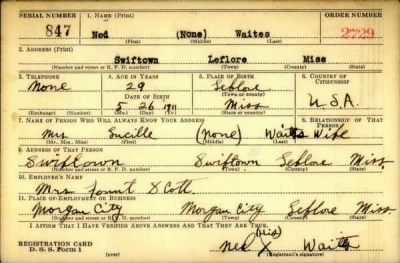 SERIAL NUMBER 1. NAME (Print) ORDER NUMBER
847 Ned (None) Waites 2729
(First) (Middle) (Last)
2. ADDRESS (Print)
Swiftown Leflore Miss
(Number and street or R. F. D. number) (Town) (County) (State)
3. TELEPHONE 4. AGE IN YEARS 5. PLACE OF BIRTH 6. COUNTRY OF CITIZENSHIP
None 29 Leflore
DATE OF BIRTH (Town or county)
5 26 1911 Miss U.S.A.
(Exchange) (Number) (Mo.) (Day) (Yr.) (State or country)
7. NAME OF PERSON WHO WILL ALWAYS KNOW YOUR ADDRESS 8. RELATIONSHIP OF THAT PERSON
Mrs Lucille (None) Waites Wife
(Mr., Mrs., Miss) (First) (Middle) (Last)
9. ADDRESS OF THAT PERSON
Swiftown Swiftown Leflore Miss.
(Number and street or R. F. D. number) (Town) (County) (State)
10. EMPLOYER'S NAME
Mrs. Scott
11. PLACE OF EMPLOYMENT OR BUSINESS
Morgan City Morgan City Leflore Miss.
(Number and street or R. F. D. number) (Town) (County) (State)
I AFFIRM THAT I HAVE VERIFIED ABOVE ANSWERS AND THAT THEY ARE TRUE.
(his)
REGISTRATION CARD Ned X Waites
D. S. S. Form 1 (over) (Registrant's signature)